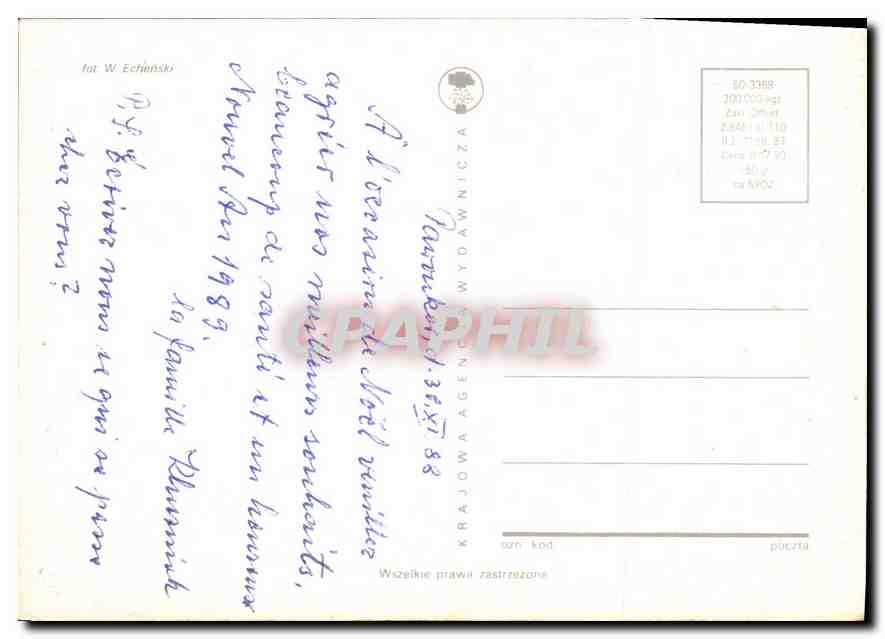 fot. W. Echeński
KRAJOWA AGENCJA WYDAWNICZA
60-3369
200.000 egz.
Zakł. Offset.
150 g
na NPOZ
d. 30.XI.88
A l'occasion de Noël veuillez
agréer nos meilleurs souhaits,
beaucoup de santé et un heureux
Nouvel An 1989.
la famille
P.S. Écrivez nous ce qui se passe
chez vous?
CPAPHIL
ozn. kod.
poczta
Wszelkie prawa zastrzeżone